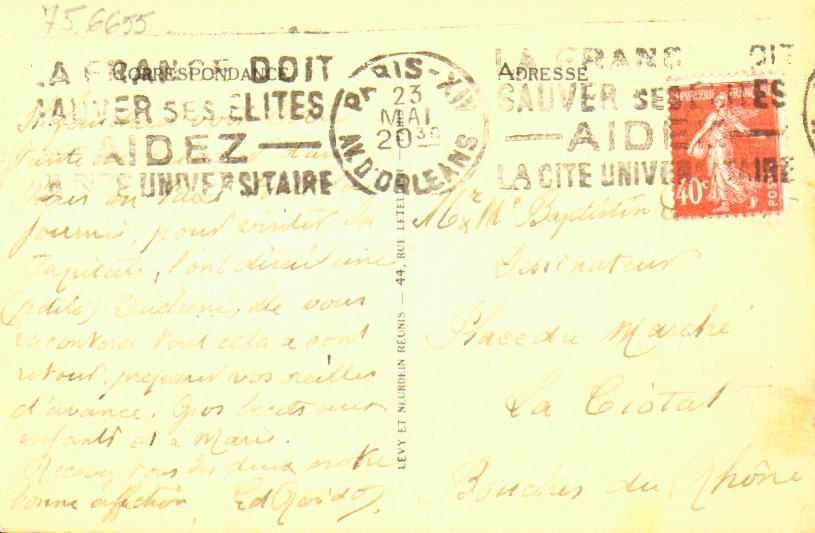 756655
LA FRANCE DOIT
SAUVER SES ÉLITES
AIDEZ
LA CITE UNIVERSITAIRE
CORRESPONDANCE
PARIS-XIV
23
MAI
20 30
AV. D'ORLEANS
LA FRANCE DOIT
SAUVER SES ÉLITES
AIDEZ
LA CITE UNIVERSITAIRE
ADRESSE
REPUBLIQUE FRANC
40c
POST
pour visiter la
Capitale, l'on dirait une
(petite) Duchesse, elle vous
racontera tout cela a son
retour, preparez vos oreilles
d'avance. Gros becots aux
enfants et a Marie.
Recevez tous les deux notre
bonne affection
LEVY ET NEURDEIN REUNIS — 44, RUE LETEL
Mr & Me Baptistin
Dessinateur
Place du Marché
La Ciotat
Bouches du Rhône